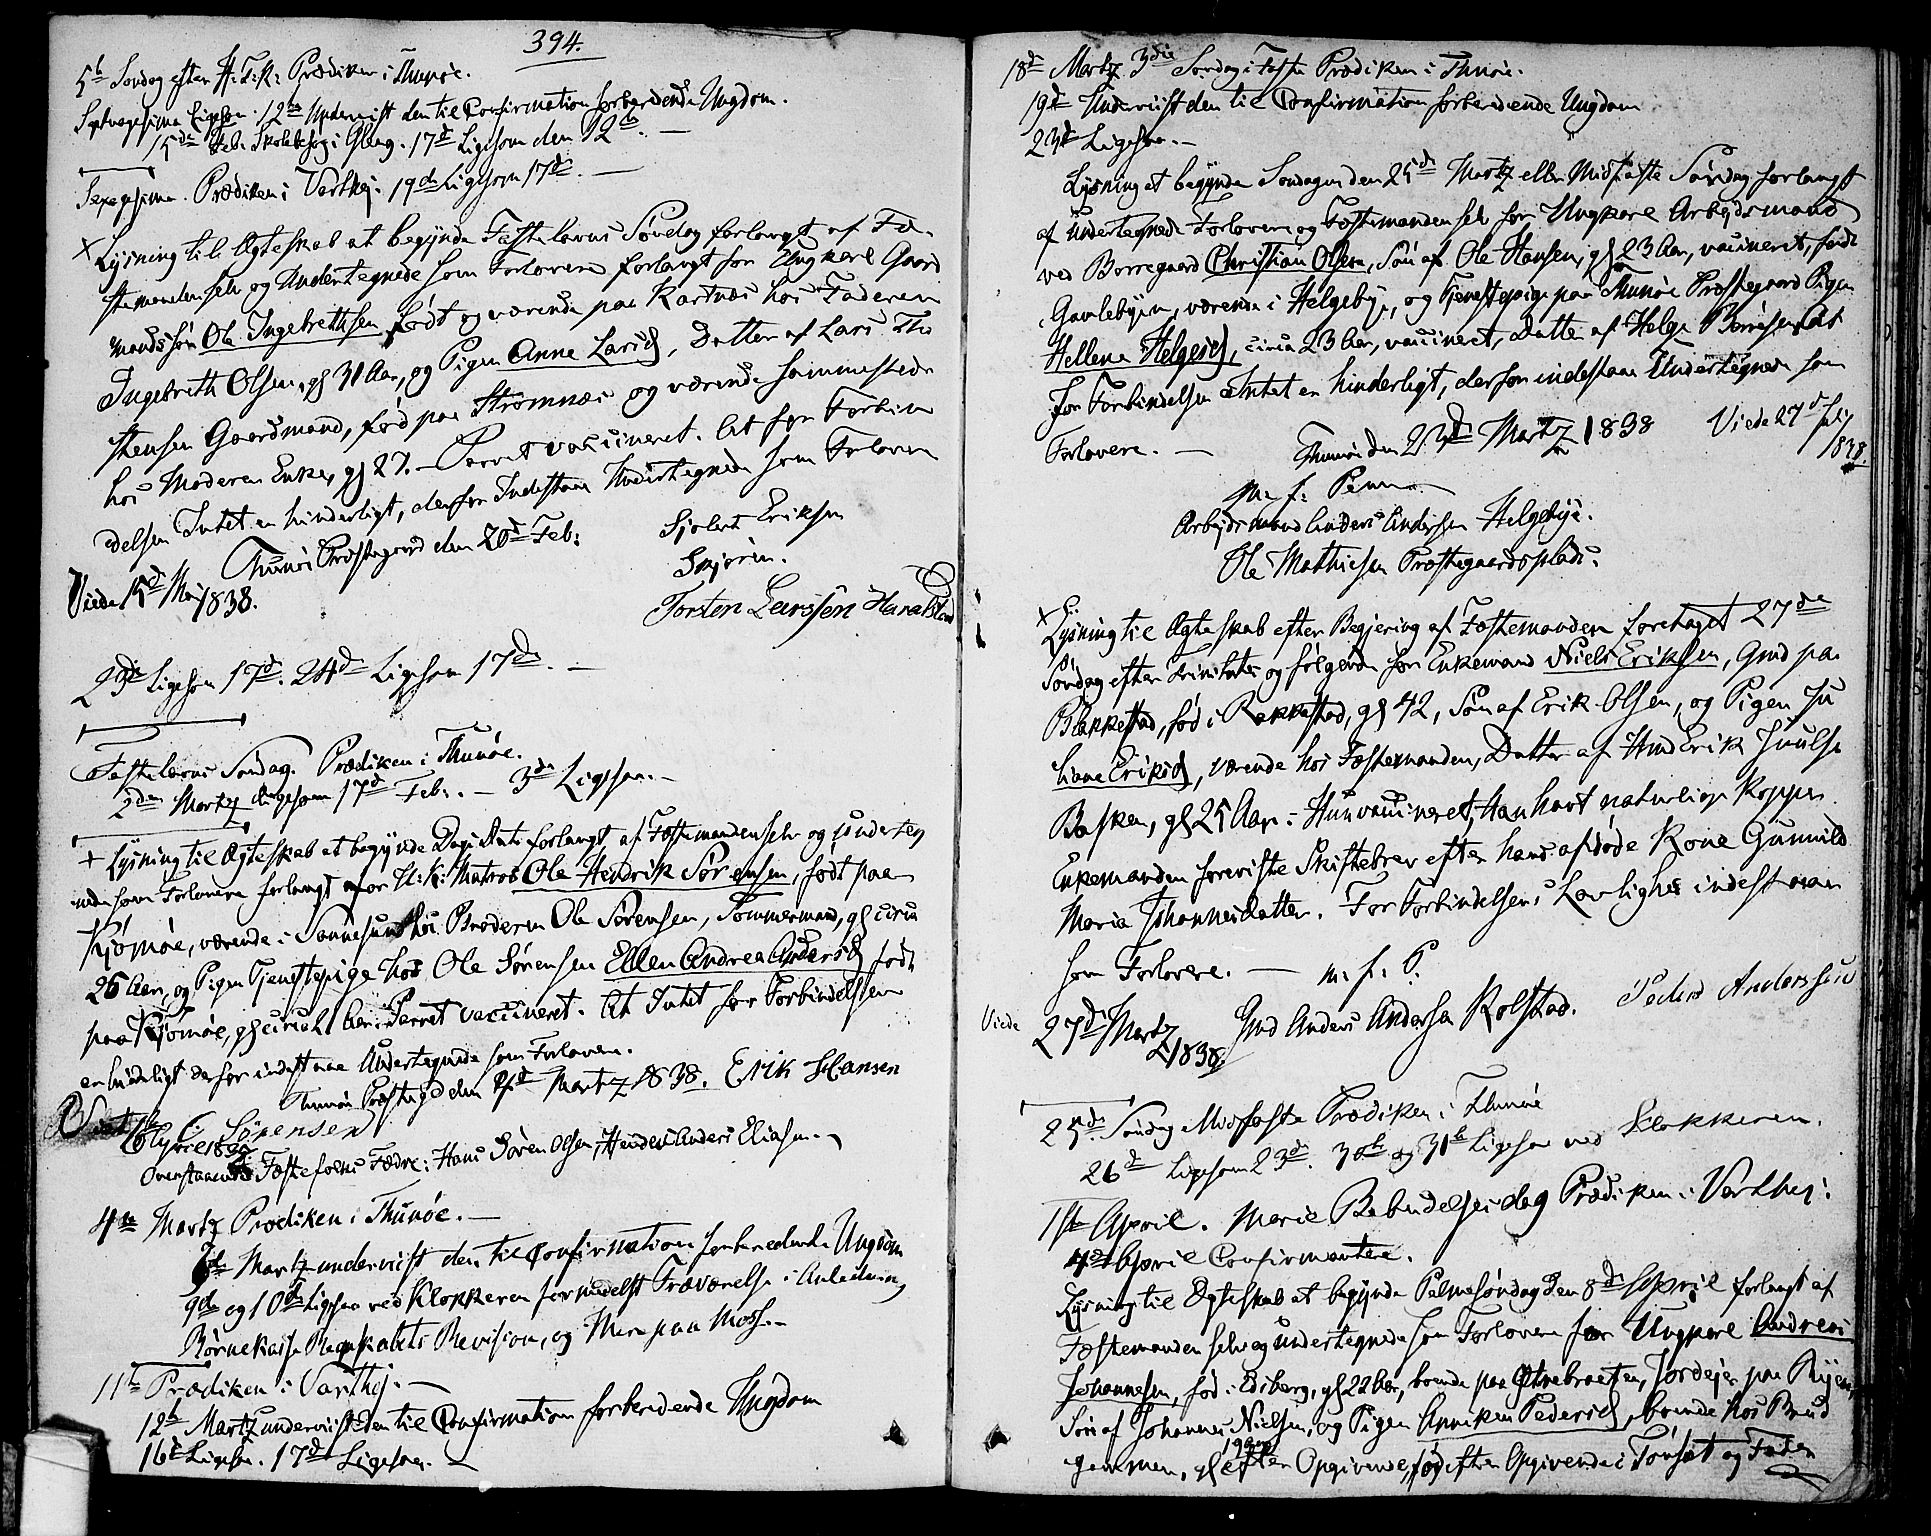 394.
5te Søndag efter H. T. K. Prædiken i Thunøe.
Septuagesima Ligesom. 12te Underviist den til Confirmation forberedende Ungdom.
15de Feb. Skolebesøg i 17de Ligesom den 12te. —
Sexagesima. Prædiken i Varthej. 19de Ligesom 17de. —
x Lysning til Ægteskab at begynde Fastelavns Søndag forlangt af Fæ-
stemanden selv og Undertegnede som Forlovere forlangt for Ungkarl Gaard
mandssøn Ole Ingebrethsen født og værende paa Kartnæs hos Faderen
Ingebrith Olsen, gl 31 Aar, og Pigen Anne Larsd, Datter af Lars Thor
stensen Gaardmand, fød paa Strømnæs og værende sammesteds
hos Moderen Enke, gl 27. — Parret vaccineret. At for Forbin
delsen Intet er hinderligt, derfor Indestaae Undertegnede som Forlovere
Thunøe Præstegaard den 20de Feb:
Siovert Eriksen
Skjørin.
Viede 15de Mai 1838.
Torsten Larssen Haralstad
23de Ligesom 17de. 24de Ligesom 17de. —
Fastelavns Søndag. Prædiken i Thunøe.
2den Martz ligesom 17de Feb. — 3de Ligesom. —
+ Lysning til Ægteskab at begynde Dags Dato forlangt af Fæstemanden selv og underteg
nede som Forlovere forlangt for U. K. Matros Ole Hendrik Sørensen, født paa
Kjømøe, værende i Sannesund hos Broderen Ole Sørensen, Tømmermand, gl circa
26 Aar, og Pigen Tjenestepige hos Ole Sørensen Ellen Andrea Andersd født
paa Kjømøe, gl circa Aar. Parret vaccineret. At Intet for Forbindelsen
er hinderligt derfor indestaae Undertegnede som Forlovere.
Thunøe Præstegd den 4de Martz 1838. Erik Hansen
Viet 16 April 1838 C: Sørensen
Ovenstaaende Fæstefolks Fædre: Hans Søren Olsen, Hendes Anders Eliasen. —
4de Martz Prædiken i Thunøe. —
Martz underviist den til Confirmation forberedende Ungdom
9de og 10de Ligesaa ved Klokkeren formedelst Fraværelse i Anledning
Børnekasse Regnskabets Revision, og Mere paa Moss. —
11te Prædiken i Varthej. —
12te Martz underviist den til Confirmation forberedende Ungdom
16de Ligesaa. 17de Ligesaa. —
18de Martz 3die Søndag i Faste Prædiken i Thunøe.
19de Underviist den til Confirmation forberedende Ungdom
23de Ligesaa. —
Lysning at begynde Søndagen den 25de Martz eller Midfaste Søndag forlangt
af undertegnede Forlovere og Fæstemanden selv for Ungkarl Arbeidsmand
ved Borregaard Christian Olsen, Søn af Ole Hansen, gl 23 Aar, vaccineret, født
i Gamlebyen, værende i Helgeby, og Tjenestepige paa Thunøe Præstegaard Pigen
Hellene Helgesd, circa 23 Aar, vaccineret, Datter af Helge Børresen. At
for Forbindelsen Intet er hinderligt, derfor indestaae Undertegnede som
Forlovere. — Thunøe den 23de Martz 1838 Viede 27de Juli 1838.
m. f. Penn
Arbeidsmand Anders Andersen Helgebye.
Ole Mathiesen Præstegaardsplads.
x Lysning til Ægteskab efter Begjering af Fæstemanden foretaget 27de
Søndag efter Trinitatis og følgende for Enkemand Niels Eriksen, Gmd paa
Blakkestad, fød i Rakkestad, gl 42, Søn af Erik Olsen, og Pigen Ju
liane Eriksd, værende hos Fæstemanden, Datter af Hmd Erik Juulse
Basken, gl 25 Aar. Hun vaccineret, Han havt naturlige Kopper.
Enkemanden foreviste Skiftebrev efter hans afdøde Kone Gunnild
Maria Johannesdatter. For Forbindelsens Lovlighed indestaae
som Forlovere. — m. f. P.
Viede 27de Martz 1838. Gmd Anders Andersen Kolstad. Peder Anderssen
25de Søndag Midfaste Prædiken i Thunøe
26de Ligesom 23de. 30te og 31te Ligesaa ved Klokkeren.
1ste April. Marie Bebudelsesdag Prædiken i Varthej.
4de April Confirmantere.
Lysning til Ægteskab at begynde Palmesøndag den 8de April forlangt af
Fæstemanden selv og undertegnede som Forlovere for Ungkarl Andreas
Johannesen, fød i Edsberg, gl 22 Aar, boende paa Jordejer paa Rijen,
Søn af Johannes Nielsen, og Pigen Anniken Pedersd, boende hos Brud
gommen, gl 19 Aar efter Opgivende, fød efter Opgivende i Tønset og Fader